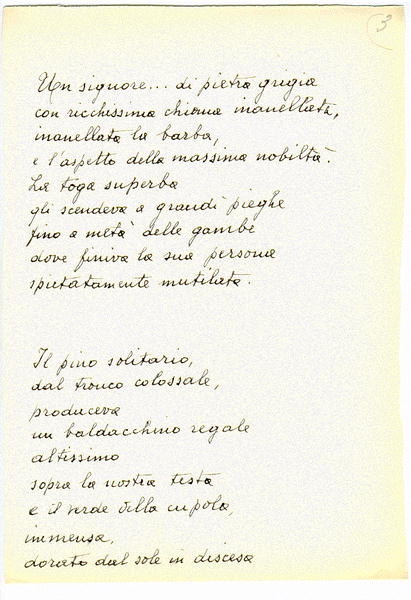 3
Un signore... di pietra grigia
con ricchissima chioma inanellata,
inanellata la barba,
e l'aspetto della massima nobiltà.
La toga superba
gli scendeva a grandi pieghe
fino a metà delle gambe
dove finiva la sua persona
spietatamente mutilata.
Il pino solitario,
dal tronco colossale,
produceva
un baldacchino regale
altissimo
sopra la nostra testa
e il verde della cupola,
immensa,
dorato dal sole in discesa